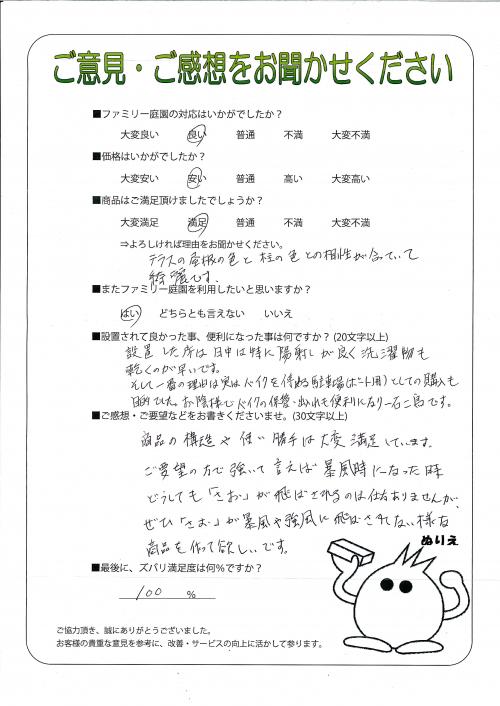 ご意見・ご感想をお聞かせください
■ファミリー庭園の対応はいかがでしたか？
大変良い 良い 普通 不満 大変不満
■価格はいかがでしたか？
大変安い 安い 普通 高い 大変高い
■商品はご満足頂けましたでしょうか？
大変満足 満足 普通 不満 大変不満
⇒よろしければ理由をお聞かせください。
テラスの屋根の色と柱の色との相性が合っていて
綺麗です。
■またファミリー庭園を利用したいと思いますか？
はい どちらとも言えない いいえ
■設置されて良かった事、便利になった事は何ですか？(20文字以上)
設置した所は日中は特に陽射しが良く洗濯物も
乾くのが早いです。
そして一番の理由は実はバイクを停める駐車場(ポート用)としての購入も
目的でした。お陰様でバイクの保管・出入れも便利になり一石二鳥です。
■ご感想・ご要望などをお書きくださいませ。(30文字以上)
商品の構造や使い勝手は大変満足しています。
ご要望の方で強いて言えば暴風時になった時
どうしても「さお」が飛ばされるのは仕方ありませんが、
ぜひ「さお」が暴風や強風に飛ばされない様な
商品を作って欲しいです。
ぬりえ
■最後に、ズバリ満足度は何％ですか？
100 %
ご協力頂き、誠にありがとうございました。
お客様の貴重な意見を参考に、改善・サービスの向上に活かして参ります。